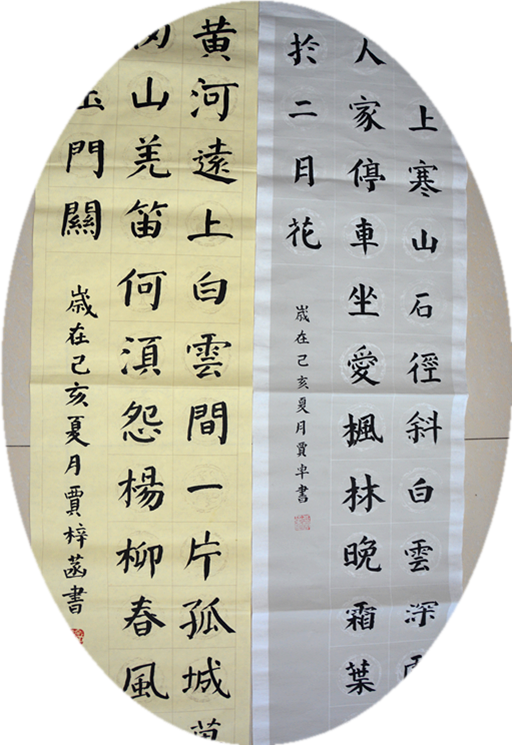 上寒山石徑斜白雲深
人家停車坐愛楓林晚霜葉
於二月花
歲在己亥夏月賈書
黄河遠上白雲間一片孤城
山羌笛何湏怨楊柳春風
玉門關
歲在己亥夏月賈梓菡書